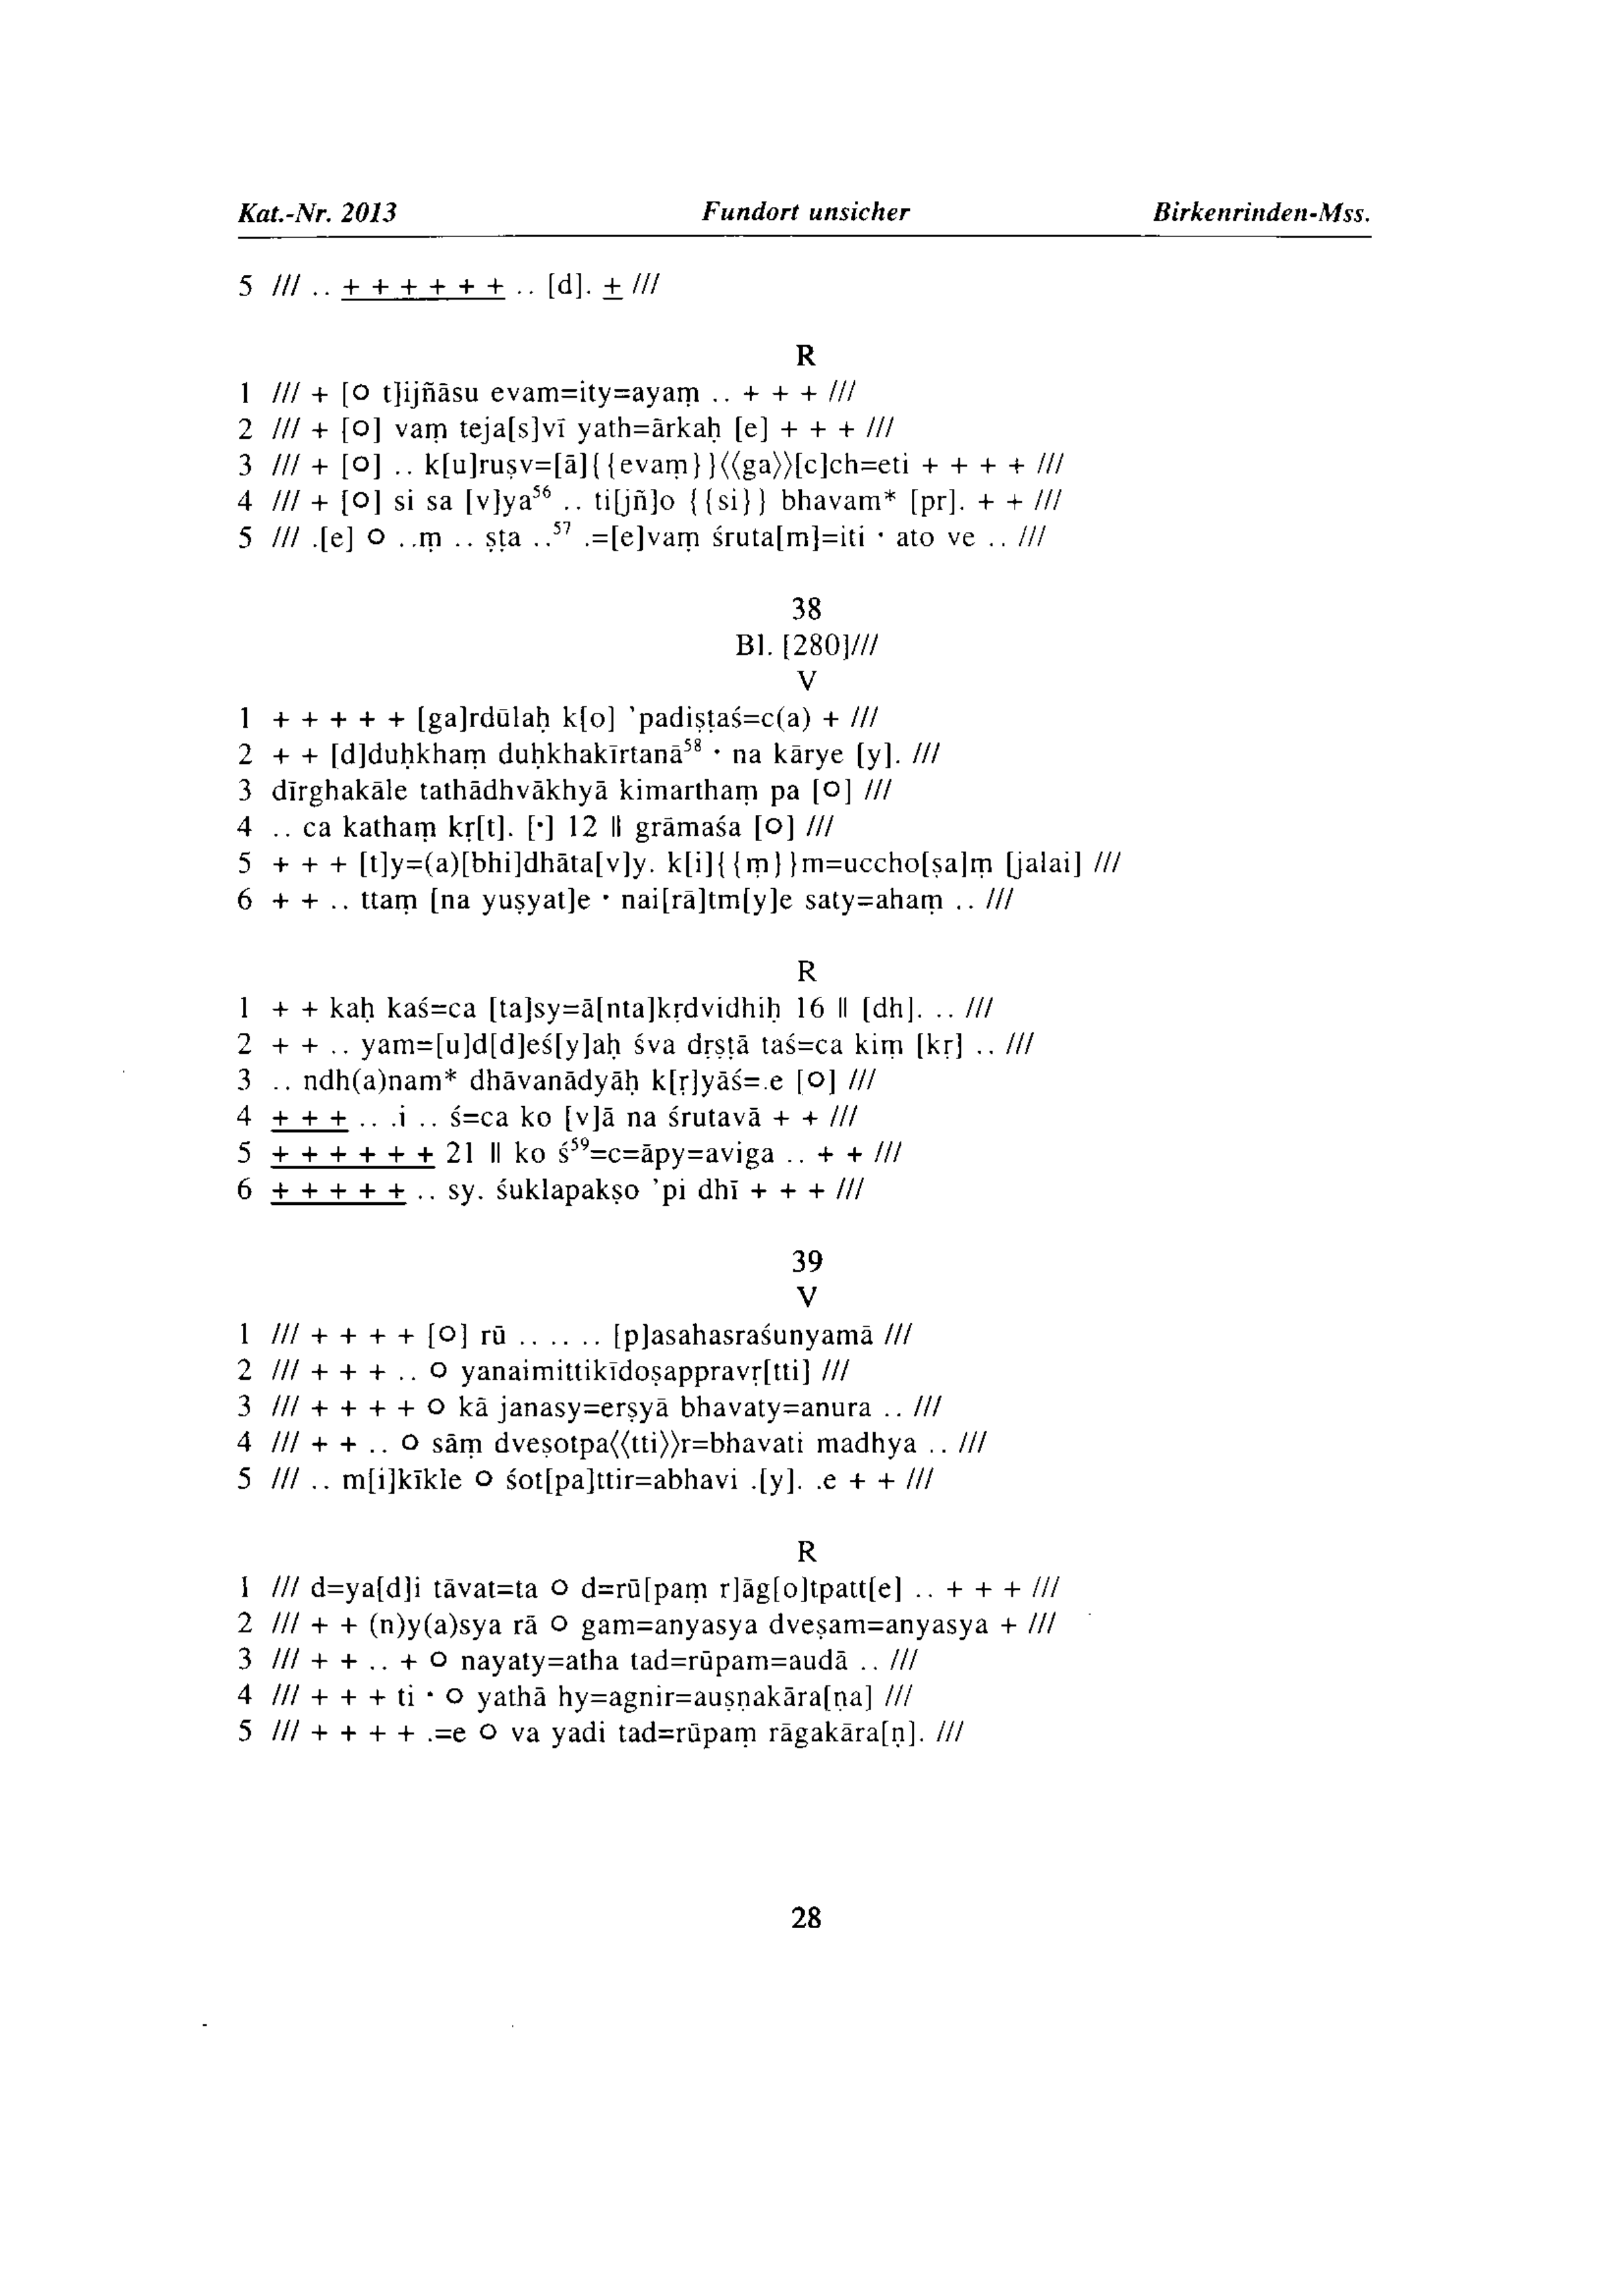 Kat.-Nr. 2013 Fundort unsicher Birkenrinden-Mss.
5 /// .. + + + + + + .. [d]. + ///
R
1 /// + [O t]ijñāsu evam=ity=ayaṃ .. + + + ///
2 /// + [O] vaṃ teja[s]vī yath=ārkaḥ [e] + + + ///
3 /// + [O] .. k[u]ruṣv=[ā]{{evaṃ}}⟨⟨ga⟩⟩[c]ch=eti + + + + ///
4 /// + [O] si sa [v]ya⁵⁶ .. ti[jñ]o {{si}} bhavam* [pr]. + + ///
5 /// .[e] O ..ṃ .. ṣṭa ..⁵⁷ .=[e]vaṃ śruta[m]=iti · ato ve .. ///
38
Bl. [280]///
V
1 + + + + + [ga]rdūlaḥ k[o] 'padiṣṭaś=c(a) + ///
2 + + [d]duḥkhaṃ duḥkhakīrtanā⁵⁸ · na kārye [y]. ///
3 dīrghakāle tathādhvākhyā kimarthaṃ pa [O] ///
4 .. ca kathaṃ kṛ[t]. [·] 12 ॥ grāmaśa [O] ///
5 + + + [t]y=(a)[bhi]dhāta[v]y. k[i]{{ṃ}}m=uccho[ṣa]ṃ [jalai] ///
6 + + .. ttaṃ [na yuṣyat]e · nai[rā]tm[y]e saty=ahaṃ .. ///
R
1 + + kaḥ kaś=ca [ta]sy=ā[nta]kṛdvidhiḥ 16 ॥ [dh]. .. ///
2 + + .. yam=[u]d[d]eś[y]aḥ śva dṛṣṭā taś=ca kiṃ [kṛ] .. ///
3 .. ndh(a)nam* dhāvanādyāḥ k[ṛ]yāś=.e [O] ///
4 + + + .. .i .. ś=ca ko [v]ā na śrutavā + + ///
5 + + + + + + 21 ॥ ko ś⁵⁹=c=āpy=aviga .. + + ///
6 + + + + + .. sy. śuklapakṣo 'pi dhī + + + ///
39
V
1 /// + + + + [O] rū .. .. .. [p]asahasraśunyamā ///
2 /// + + + .. O yanaimittikīdoṣappravṛ[tti] ///
3 /// + + + + O kā janasy=erṣyā bhavaty=anura .. ///
4 /// + + .. O sāṃ dveṣotpa⟨⟨tti⟩⟩r=bhavati madhya .. ///
5 /// .. m[i]kīkle O śot[pa]ttir=abhavi .[y]. .e + + ///
R
1 /// d=ya[d]i tāvat=ta O d=rū[paṃ r]āg[o]tpatt[e] .. + + + ///
2 /// + + (n)y(a)sya rā O gam=anyasya dveṣam=anyasya + ///
3 /// + + .. + O nayaty=atha tad=rūpam=audā .. ///
4 /// + + + ti · O yathā hy=agnir=auṣṇakāra[ṇa] ///
5 /// + + + + .=e O va yadi tad=rūpaṃ rāgakāra[ṇ]. ///
28